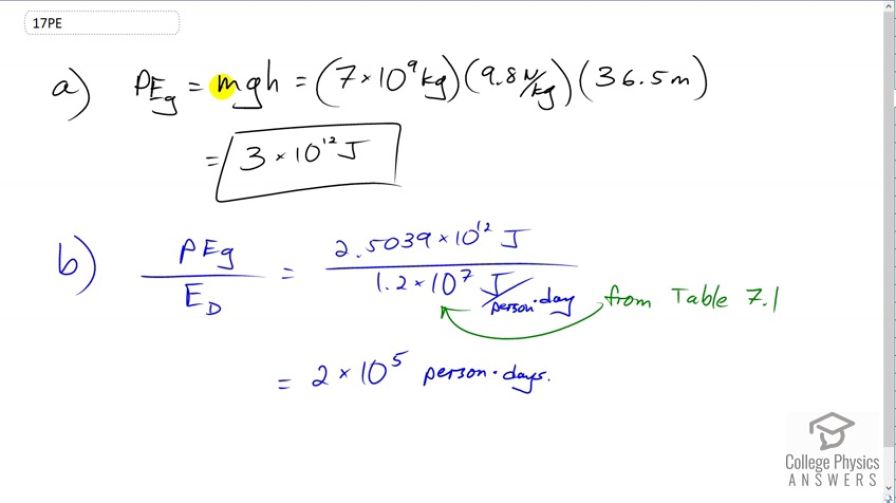 17PE
a) PEg = mgh = (7 × 10⁹ kg)(9.8 N/kg)(36.5 m)
= 3 × 10¹² J
b) PEg / E_D = 2.5039 × 10¹² J / 1.2 × 10⁷ J/person·day from Table 7.1
= 2 × 10⁵ person·days.
College Physics
ANSWERS